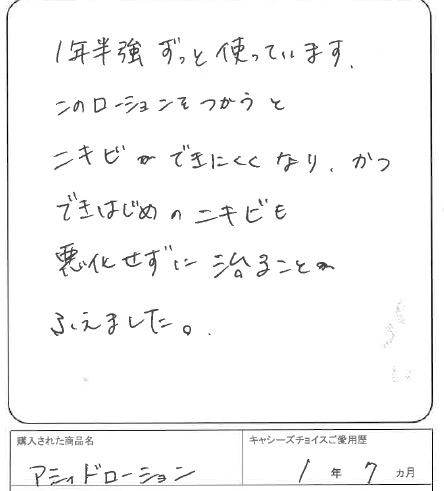 1年半強 ずっと使っています.
このローションをつかうと
ニキビができにくくなり、かつ
できはじめのニキビも
悪化せずに治ることが
ふえました。
購入された商品名
キャシーズチョイスご愛用歴
アミノドローション
1年7ヵ月